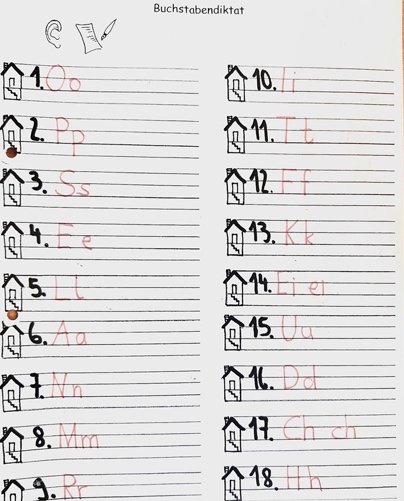 Buchstabendiktat
1. Oo
2. Pp
3. Ss
4. Ee
5. Ll
6. Aa
7. Nn
8. Mm
9. Rr
10. Ii
11. Tt
12. Ff
13. Kk
14. Ei ei
15. Uu
16. Dd
17. Ch ch
18. Hh